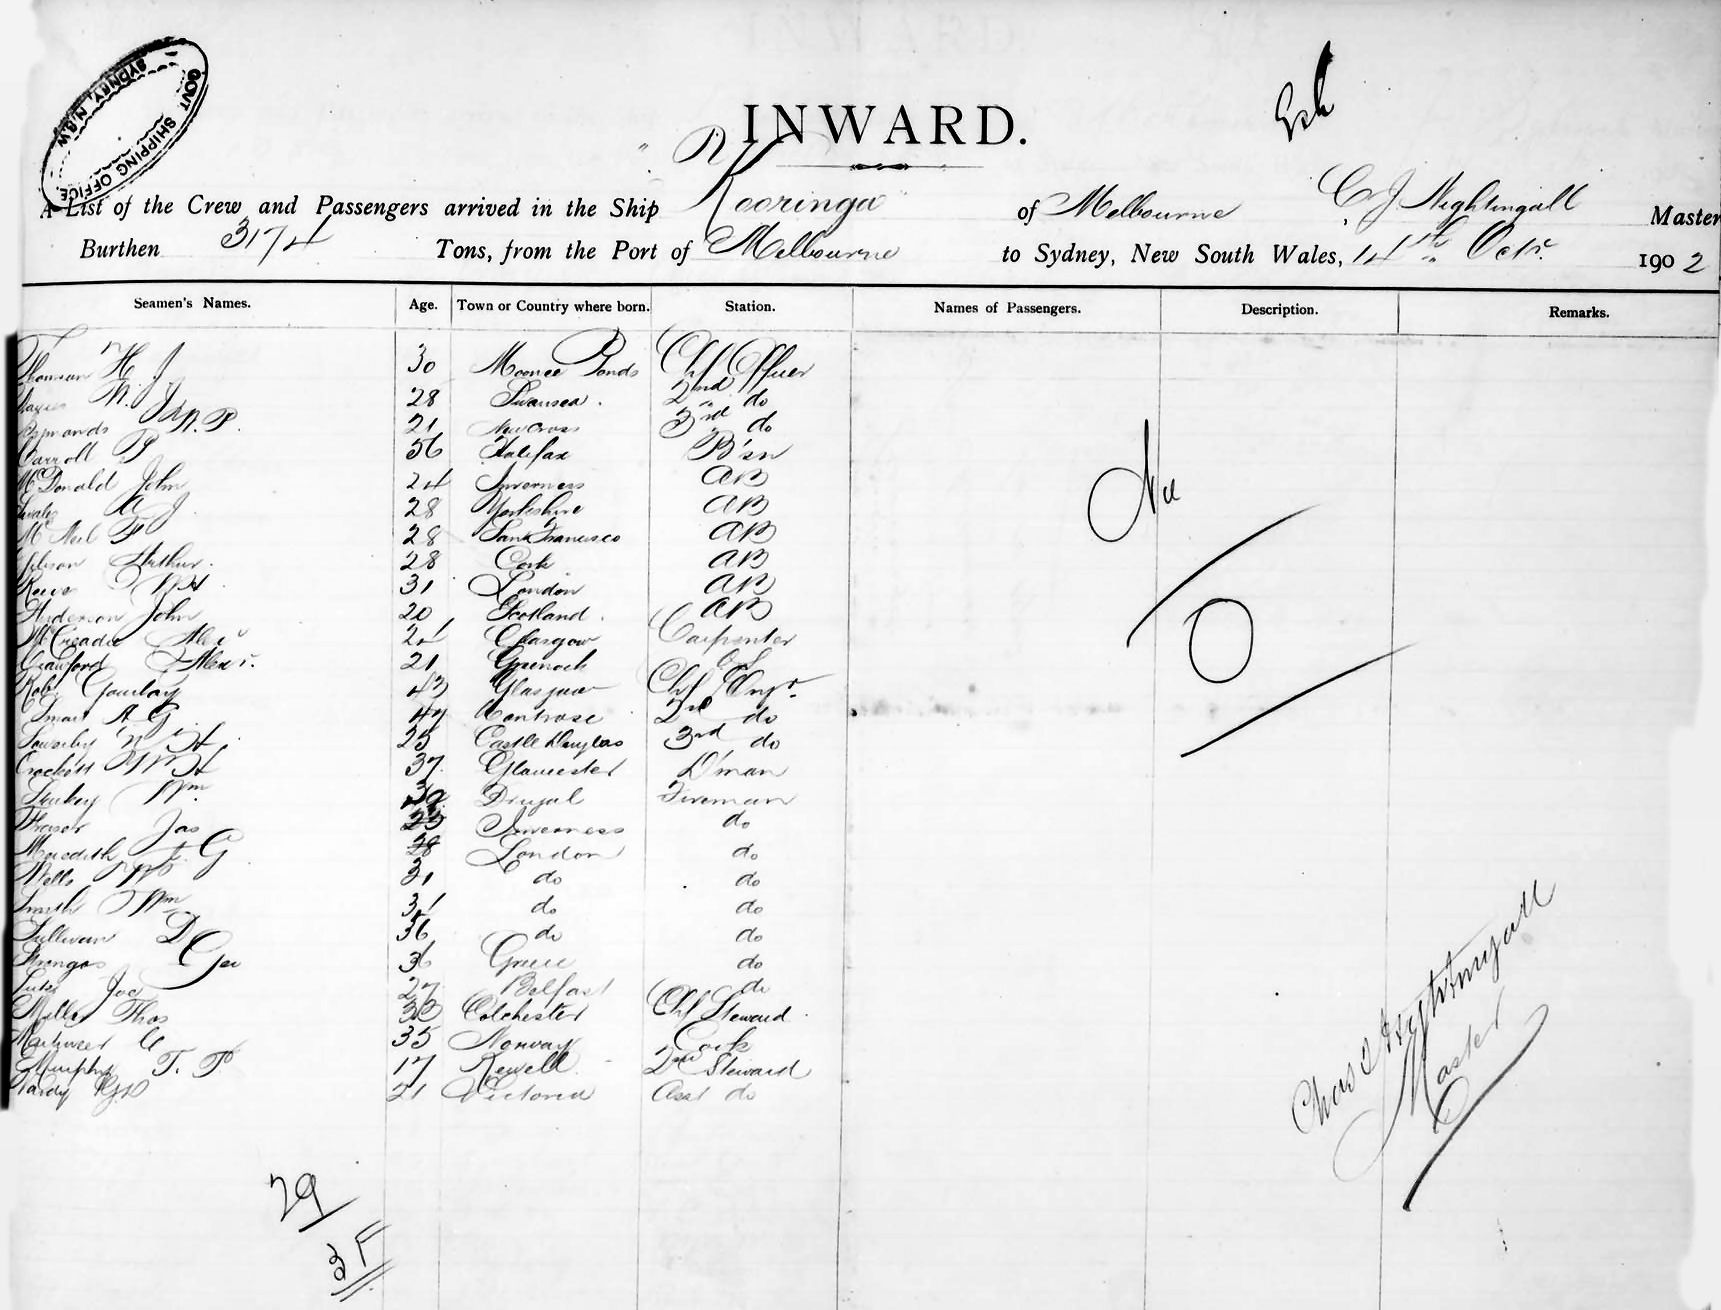 GOVT SHIPPING OFFICE
SYDNEY, N.S.W
INWARD.
A List of the Crew and Passengers arrived in the Ship Kooringa of Melbourne C J Nightingall Master
Burthen 3174 Tons, from the Port of Melbourne to Sydney, New South Wales, 14th Octr. 1902
Seamen's Names. Age. Town or Country where born. Station. Names of Passengers. Description. Remarks.
H J 30 Moonee Ponds Chf Officer
28 Swansea. 2nd do
21 New Cross 3rd do
Carroll P 56 Halifax B'sn
McDonald John 24 Inverness AB
A J 28 Yorkshire AB
McNeil F 28 San Francisco AB
Arthur. 28 Cork AB
Rowe WH 31 London AB
Anderson John 20 Scotland. AB
McCreadie Alexr Glasgow Carpenter
Crawford Alexr. 21 Greenock
Robt Gourlay 43 Glasgow Chf Engr.
Smart A G 47 Montrose 2nd do
Sowerby W H 25 Castle Douglas 3rd do
Crockett W H 37 Gloucester D'man
Wm Fireman
Fraser Jas 23 Inverness do
Meredith G 28 London do
Wells 31 do do
Smith Wm do do
Sullivan D 36 do do
Geo 36 Greece do
Joe 27 Belfast do
Mills Thos 33 Colchester Chf Steward
35 Norway Cook
Murphy T. P 17 2nd Steward
Hardy 21 Victoria Asst do
Nil
O
Master
29